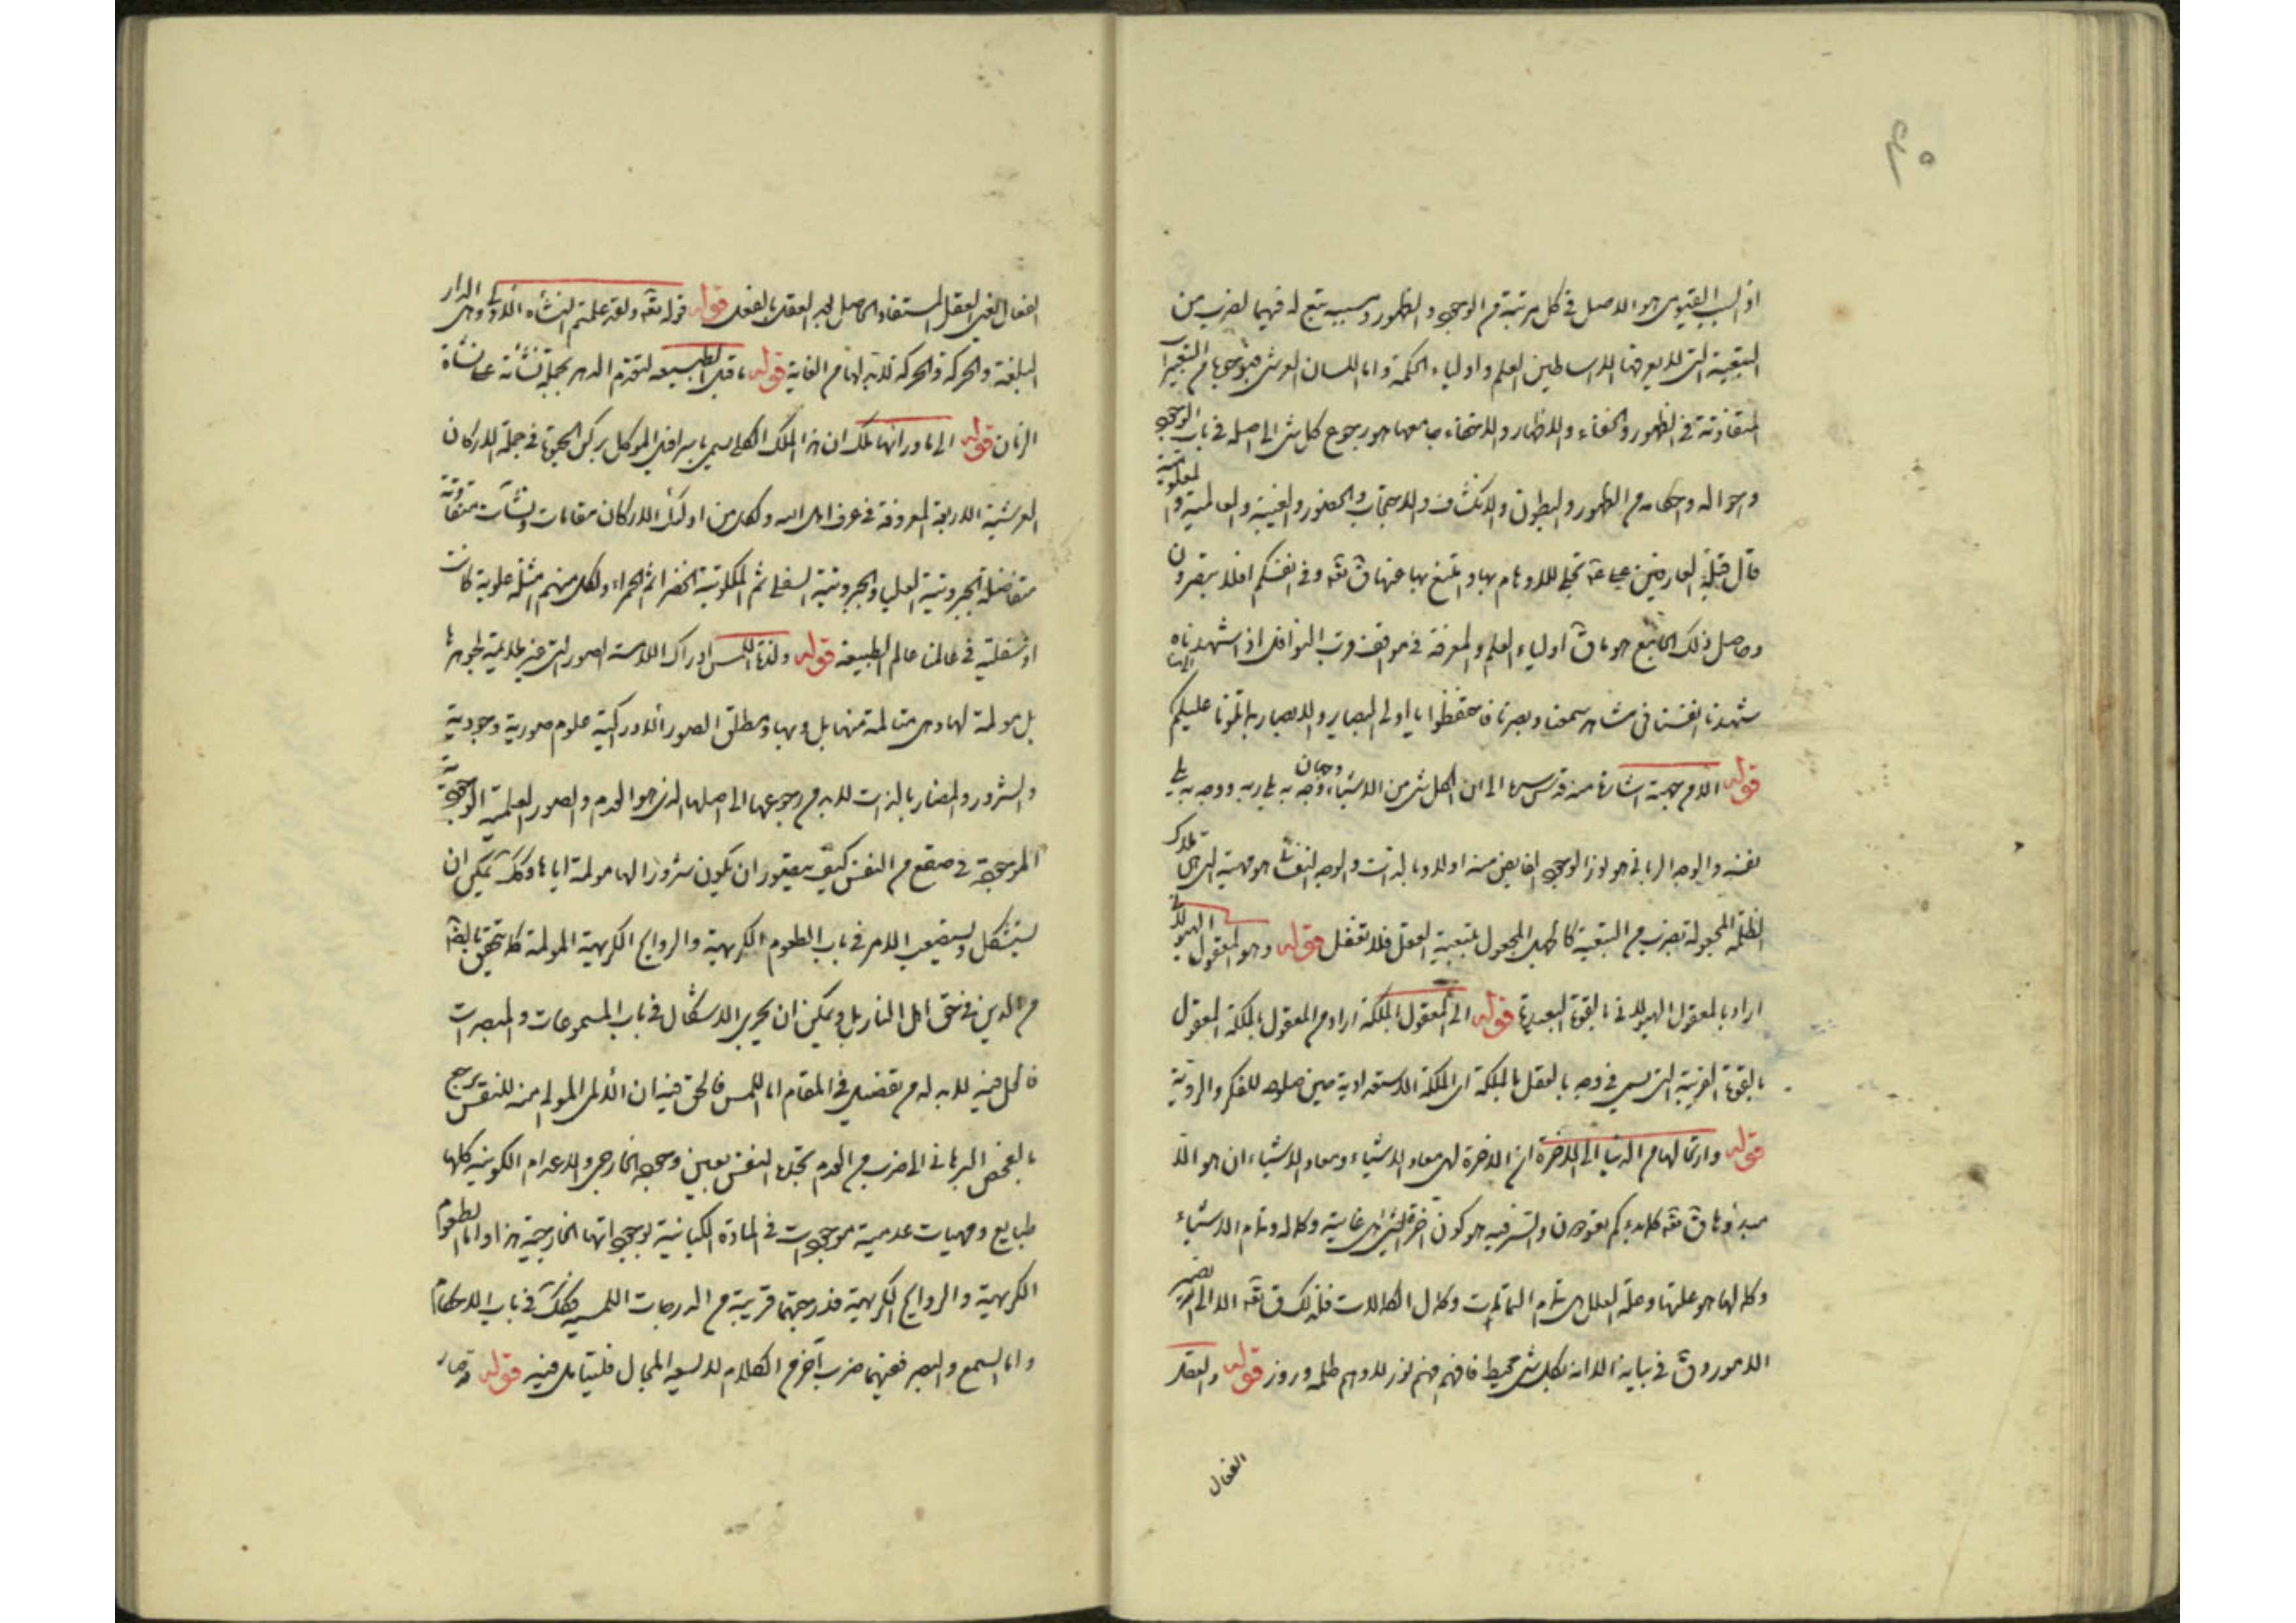 اذ السبب القيومى هو الاصل فى كل مرتبة من الوجود والظهور ومسببه يتبع له فيهما لضرب من
التبعية التى لا يعرفها الا اساطين العلم واولياء الحكمة واما اللسان العرشى فبوجوهها من التعبيرات
المتفاوتة فى الظهور والخفاء والاظهار والاخفاء جامعها هو رجوع كل شئ الى اصله فى باب الوجود
واحواله واحكامه من الظهور والبطون والانكشاف والاحتجاب والحضور والغيبة والعالمية والمعلومية
قال قبلة العارفين على ع تجلى للاوهام بها وامتنع بها عنها ق تعه وفى انفسكم افلا تبصرون
وحاصل ذلك الجامع هو ما ق اولياء العلم والمعرفة فى موقف قرب النوافل اذا شهدناه
شهدنا انفسنا فى مشاهد سمعنا وبصرنا فاحتفظوا يا اولى البصاير والابصار بما تلونا عليكم
قوله الا من جهة اشارة منه قدس سره الى ان لكل شئ من الاشياء وجهان وجه به يلى ربه ووجه به يلى
نفسه والوجه الربانى هو نور الوجود الفايض منه اولا وبالذات والوجه النفسانى هو مهية التى هى ملاك
الظلمة المجعولة بضرب من التبعية كالجهل المجعول بتبعية العقل فلا تغفل قوله وهو المعقول الهيولانى
اراد بالمعقول الهيولانى بالقوة البعيدة قوله الى المعقول بالملكة اراد من المعقول بالملكة المعقول
بالقوة القريبة التى تسمى فى وجه بالعقل بالملكة اى الملكة الاستعدادية حين صلوحه للفكر والروية
قوله وارتحالها من الدنيا الى الاخرة اذ الاخرة لهى معاد الاشياء ومعاد الاشياء ان هو الا
مبدؤها ق تعه كما بدءكم تعودون والسر فيه هو كون اخرة الشئ هى غايته وكماله وتمام الاشياء
وكمالها هو علتها وعلة العلل هى تمام التمامات وكمال الكمالات فلذلك ق تعه الا الى الله تصير
الامور وق فى بيانه الا انه بكل شئ محيط فافهم فهم نور لا وهم ظلمة وزور قوله والعقل
الفعال
الفعال اعنى العقل المستفاد الحاصل بعد العقل بالفعل قوله قوله تعه ولقد علمتم النشأة الاولى وهى الدار
البلغة والحركة والحركة لا بد لها من الغاية قوله ما قبل الطبيعه لتقدم الدهر بجملة نشأته على نشأة
الزمان قوله الى ما ورائها ملك ان هذا الملك الكلى يسمى باسرافيل الموكل بركن الحيوة فى جملة الاركان
العرشية الاربعة المعروفة فى عرف اهل الله ولكل من اولئك الاركان مقامات ونشآت متفاوتة
متفاضلة الجبروتية العليا والجبروتية السفلى ثم الملكوتية الخضراء ثم الحمراء ولكل منهم امثلة علوية كانت
او سفلية فى عالمنا عالم الطبيعة قوله ولذة اللمس ادراك اللامسة الصور التى غير ملايمة لجوهرها
بل مولمة لها وهى متالمة منها بل وبها ومطلق الصور الادراكية علوم صورية وجودية
والشرور والمضار بالذات لا بد من رجوعها الى اصلها الذى هو العدم والصور العلمية الوجودية
الموجودة فى صقع من النفس كيف يتصور ان يكون شرورا لها مولمة اياها وكذلك يمكن ان
يستشكل ويستصعب الامر فى باب الطعوم الكريهة والروايح الكريهة المولمة كما تحقق بالضرورة
من الدين فى حق اهل النار بل ويمكن ان يجرى الاشكال فى باب المسموعات والمبصرات
فالحل فيه لا بد له من تفصيل فى المقام اما اللمس فالحق فيه ان الالم المولم منه للنفس يرجع
بالفحص البرهانى الى ضرب من العدم تجده النفس بعين وجوده الخارجى والاعدام الكونية كلها
طبايع ومهيات عدمية موجودات فى المادة الكيانية بوجوداتها الخارجية هذا واما الطعوم
الكريهة والروايح الكريهة فدرجتها قريبة من الدرجات اللمسية فكذلك فى باب الاحكام
واما السمع والبصر ففيهما ضرب آخر من الكلام لا يسعه المجال فليتامل فيه قوله قصار